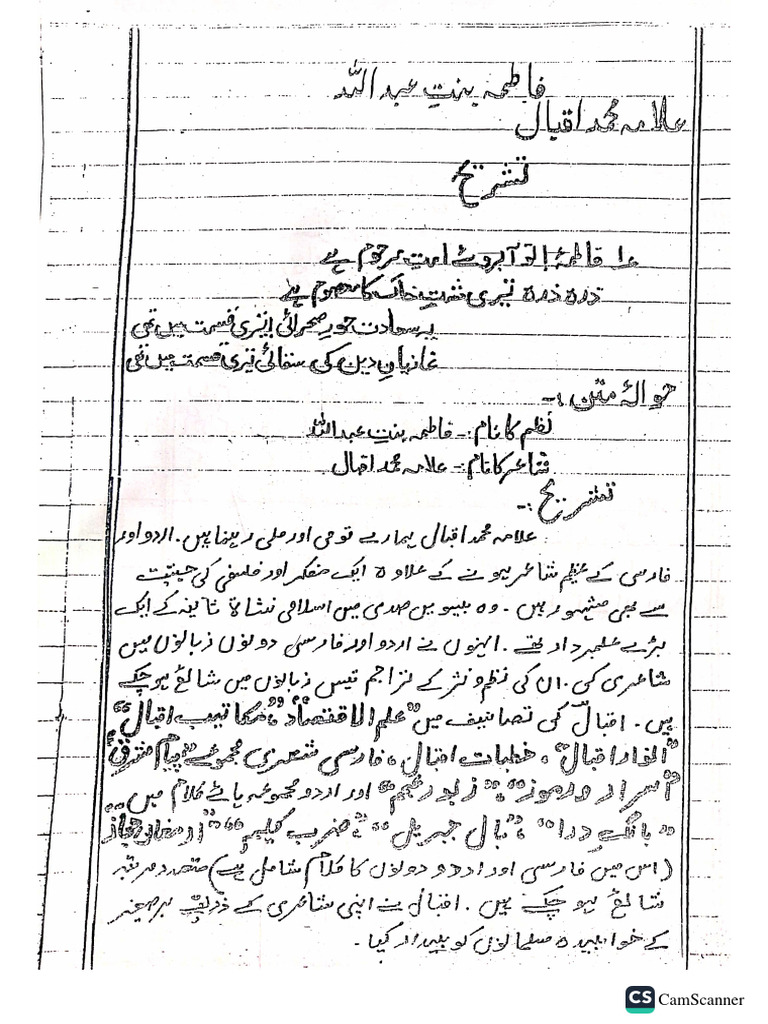 فاطمہ بنتِ عبداللہ
علامہ محمد اقبال
تشریح
۱۔ فاطمہ! تو آبروئے امتِ مرحوم ہے
ذرہ ذرہ تیری مشتِ خاک کا معصوم ہے
یہ سعادت حورِ صحرائی! تیری قسمت میں تھی
غازیانِ دین کی سقائی تیری قسمت میں تھی
حوالۂ متن :-
نظم کا نام :- فاطمہ بنتِ عبداللہ
شاعر کا نام :- علامہ محمد اقبال
تشریح :-
علامہ محمد اقبال ہمارے قومی اور ملی رہنما ہیں۔ اردو اور
فارسی کے عظیم شاعر ہونے کے علاوہ ایک مفکر اور فلسفی کی حیثیت
سے بھی مشہور ہیں۔ وہ بیسویں صدی میں اسلامی نشاۃ ثانیہ کے ایک
بڑے علمبردار تھے۔ انہوں نے اردو اور فارسی دونوں زبانوں میں
شاعری کی۔ ان کی نظم و نثر کے تراجم تیس زبانوں میں شائع ہو چکے
ہیں۔ اقبال کی تصانیف میں "علم الاقتصاد"، "مکاتیب اقبال"
"انوار اقبال"، خطبات اقبال، فارسی شعری مجموعے "پیام مشرق"
"اسرار و رموز"، "زبور عجم" اور اردو مجموعہ ہائے کلام میں
"بانگِ درا"، "بال جبریل"، "ضرب کلیم"، "ارمغان حجاز"
(اس میں فارسی اور اردو دونوں کا کلام شامل ہے) متعدد مرتبہ
شائع ہو چکے ہیں۔ اقبال نے اپنی شاعری کے ذریعے برصغیر
کے خوابیدہ مسلمانوں کو بیدار کیا۔
CS CamScanner